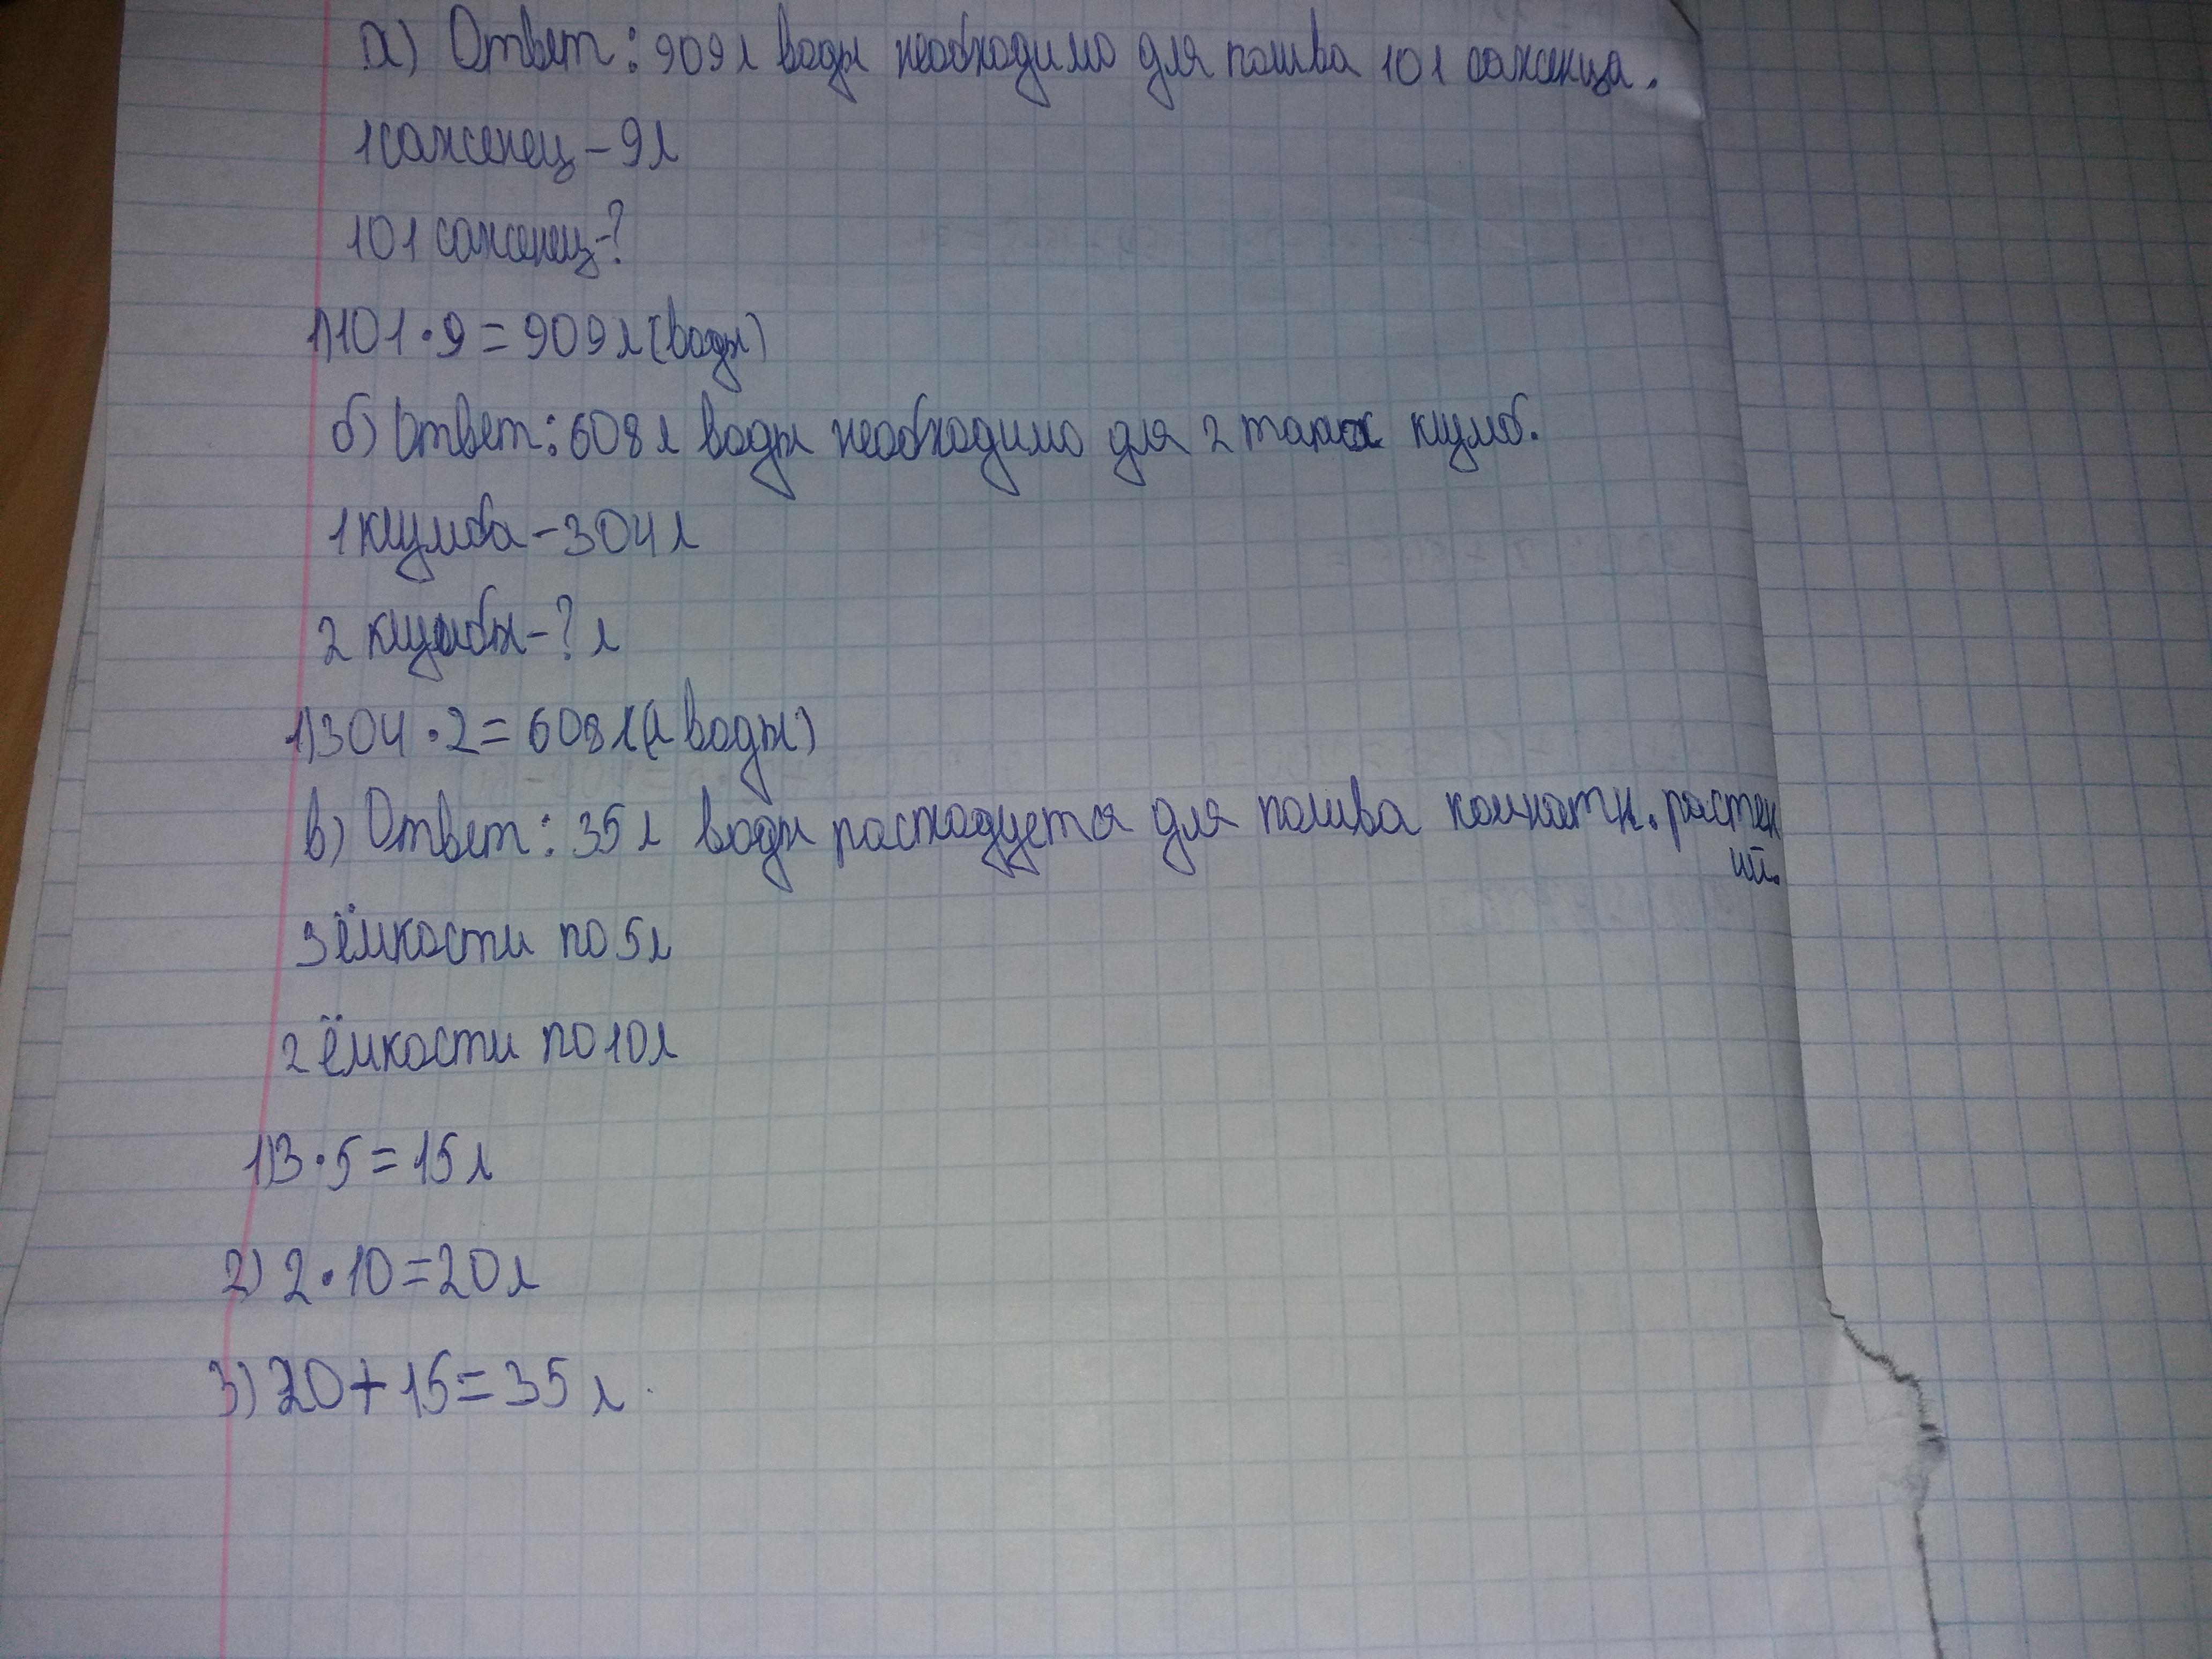 а) Ответ: 909 л воды необходимо для полива 101 саженца.
1 саженец - 9 л
101 саженец - ?
1) 101 · 9 = 909 л (воды)
б) Ответ: 608 л воды необходимо для 2 таких клумб.
1 клумба - 304 л
2 клумбы - ? л
1) 304 · 2 = 608 л (л воды)
в) Ответ: 35 л воды расходуется для полива комнатн. растен
ий.
3 ёмкости по 5 л
2 ёмкости по 10 л
1) 3 · 5 = 15 л
2) 2 · 10 = 20 л
3) 20 + 15 = 35 л